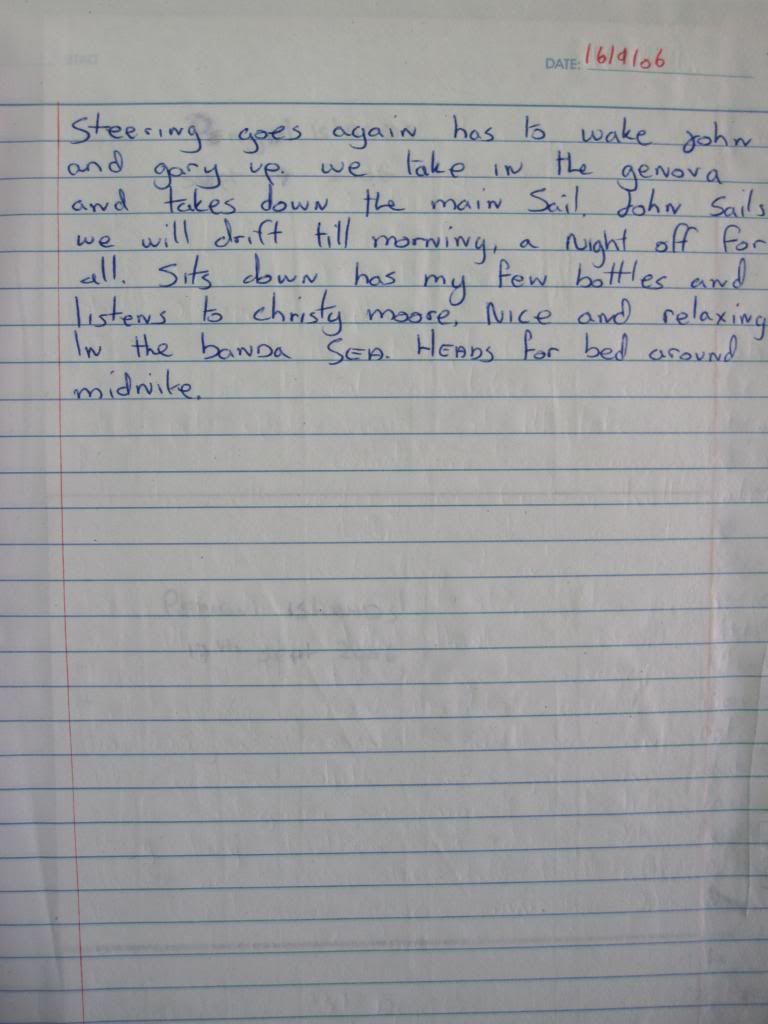 DATE: 16/9/06
Steering goes again has to wake John
and gary up. we take in the genova
and takes down the main Sail. John Sails
we will drift till morning, a Night off for
all. Sits down has my few bottles and
listens to christy moore, Nice and relaxing
In the banda SEA. HEADS for bed around
midnite.